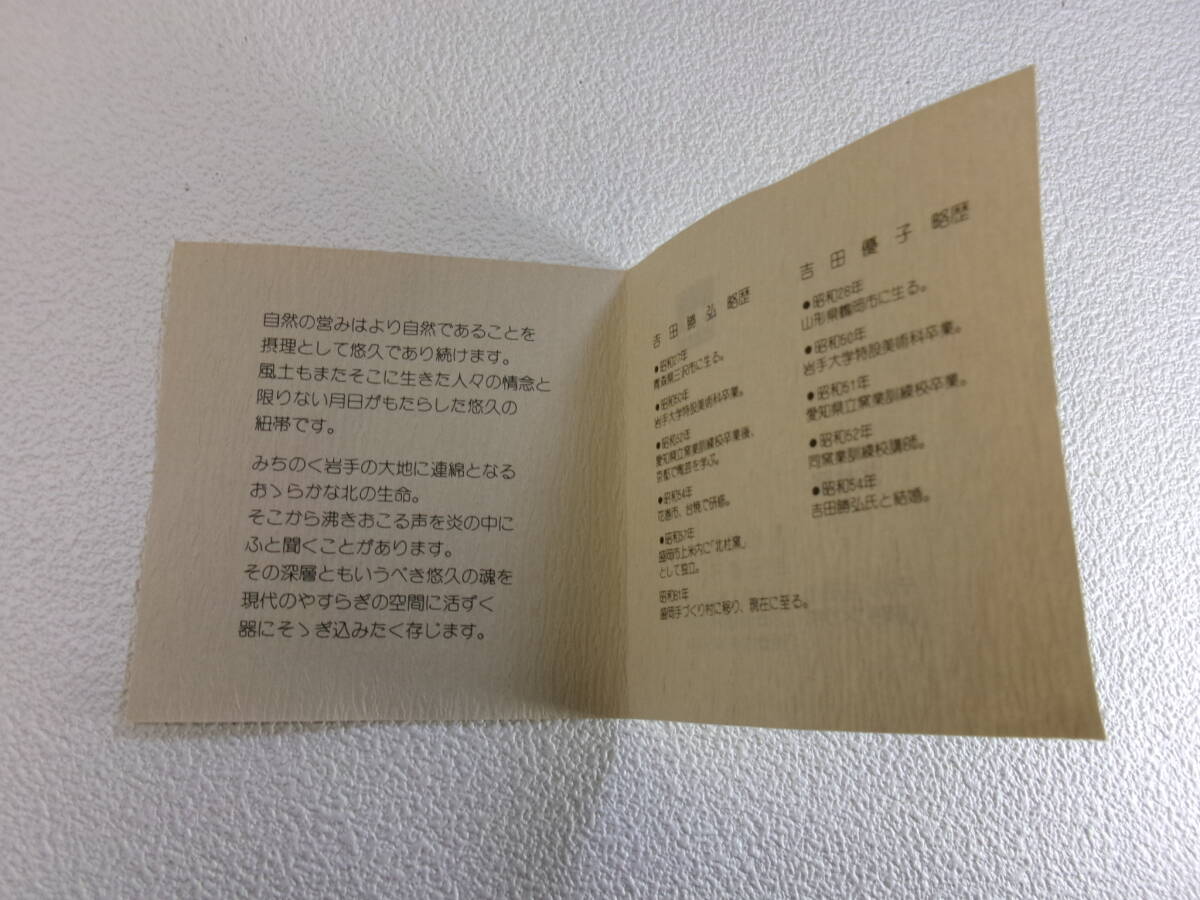 自然の営みはより自然であることを
摂理として悠久であり続けます。
風土もまたそこに生きた人々の情念と
限りない月日がもたらした悠久の
紐帯です。
みちのく岩手の大地に連綿となる
おゝらかな北の生命。
そこから沸きおこる声を炎の中に
ふと聞くことがあります。
その深層ともいうべき悠久の魂を
現代のやすらぎの空間に活ずく
器にそゝぎ込みたく存じます。
吉田勝弘 略歴
●昭和27年
青森県三沢市に生る。
●昭和50年
岩手大学特設美術科卒業。
●昭和52年
愛知県立窯業訓練校卒業後、
京都で陶芸を学ぶ。
●昭和54年
花巻市、台焼で研修。
●昭和57年
盛岡市上米内に「北杜窯」
として独立。
昭和61年
盛岡手づくり村に移り、現在に至る。
吉田優子 略歴
●昭和28年
山形県鶴岡市に生る。
●昭和50年
岩手大学特設美術科卒業。
●昭和51年
愛知県立窯業訓練校卒業。
●昭和52年
同窯業訓練校講師。
●昭和54年
吉田勝弘氏と結婚。